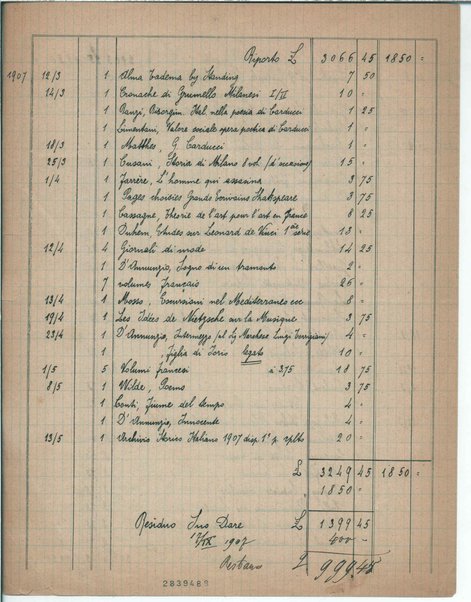 Riporto £ 3066 45 1850 =
1907 12/3 1 Alma Tadema by Standing 7 50
14/3 1 Cronache di Grumello Milanesi I/II 10 "
1 Ranzi, Risorgim. Ital. nella poesia di Carducci 1 25
1 Limentani, Valore sociale opera poetica di Carducci 1 "
18/3 1 Matthes, G Carducci 1 "
25/3 1 Cusani, Storia di Milano 8 vol. (d'occasione) 15 "
1/4 1 Farrère, L'homme qui assassina 3 75
1 Pages choisies Grands Ecrivains Shakspeare 3 75
1 Cassagne, Théorie de l'art pour l'art en France 8 25
1 Duhem, Etudes sur Léonard de Vinci 1ère série 13 "
12/4 4 Giornali di mode 14 25
1 D'Annunzio, Sogno di un tramonto 2 "
7 volumes français 25 "
13/4 1 Mosso, Escursioni nel Mediterraneo ecc 8 "
19/4 1 Les Idées de Nietzsche sur la Musique 3 75
23/4 1 D'Annunzio, Intermezzo (pel Sig Marchese Luigi Torrigiani) 4 "
1 , Figlia di Jorio legato 10 "
1/5 5 Volumi francesi à 3.75 18 75
8/5 1 Wilde, Poems 3 75
1 Conti, Fiume del tempo 4 "
1 D'Annunzio, Innocente 4 "
13/5 1 Archivio Storico Italiano 1907 disp. 1ª p. cplto 20 "
£ 3249 45 1850 =
1850 =
Residuo Suo Dare £ 1399 45
1907 400 =
Restano £ 999.45
2839489